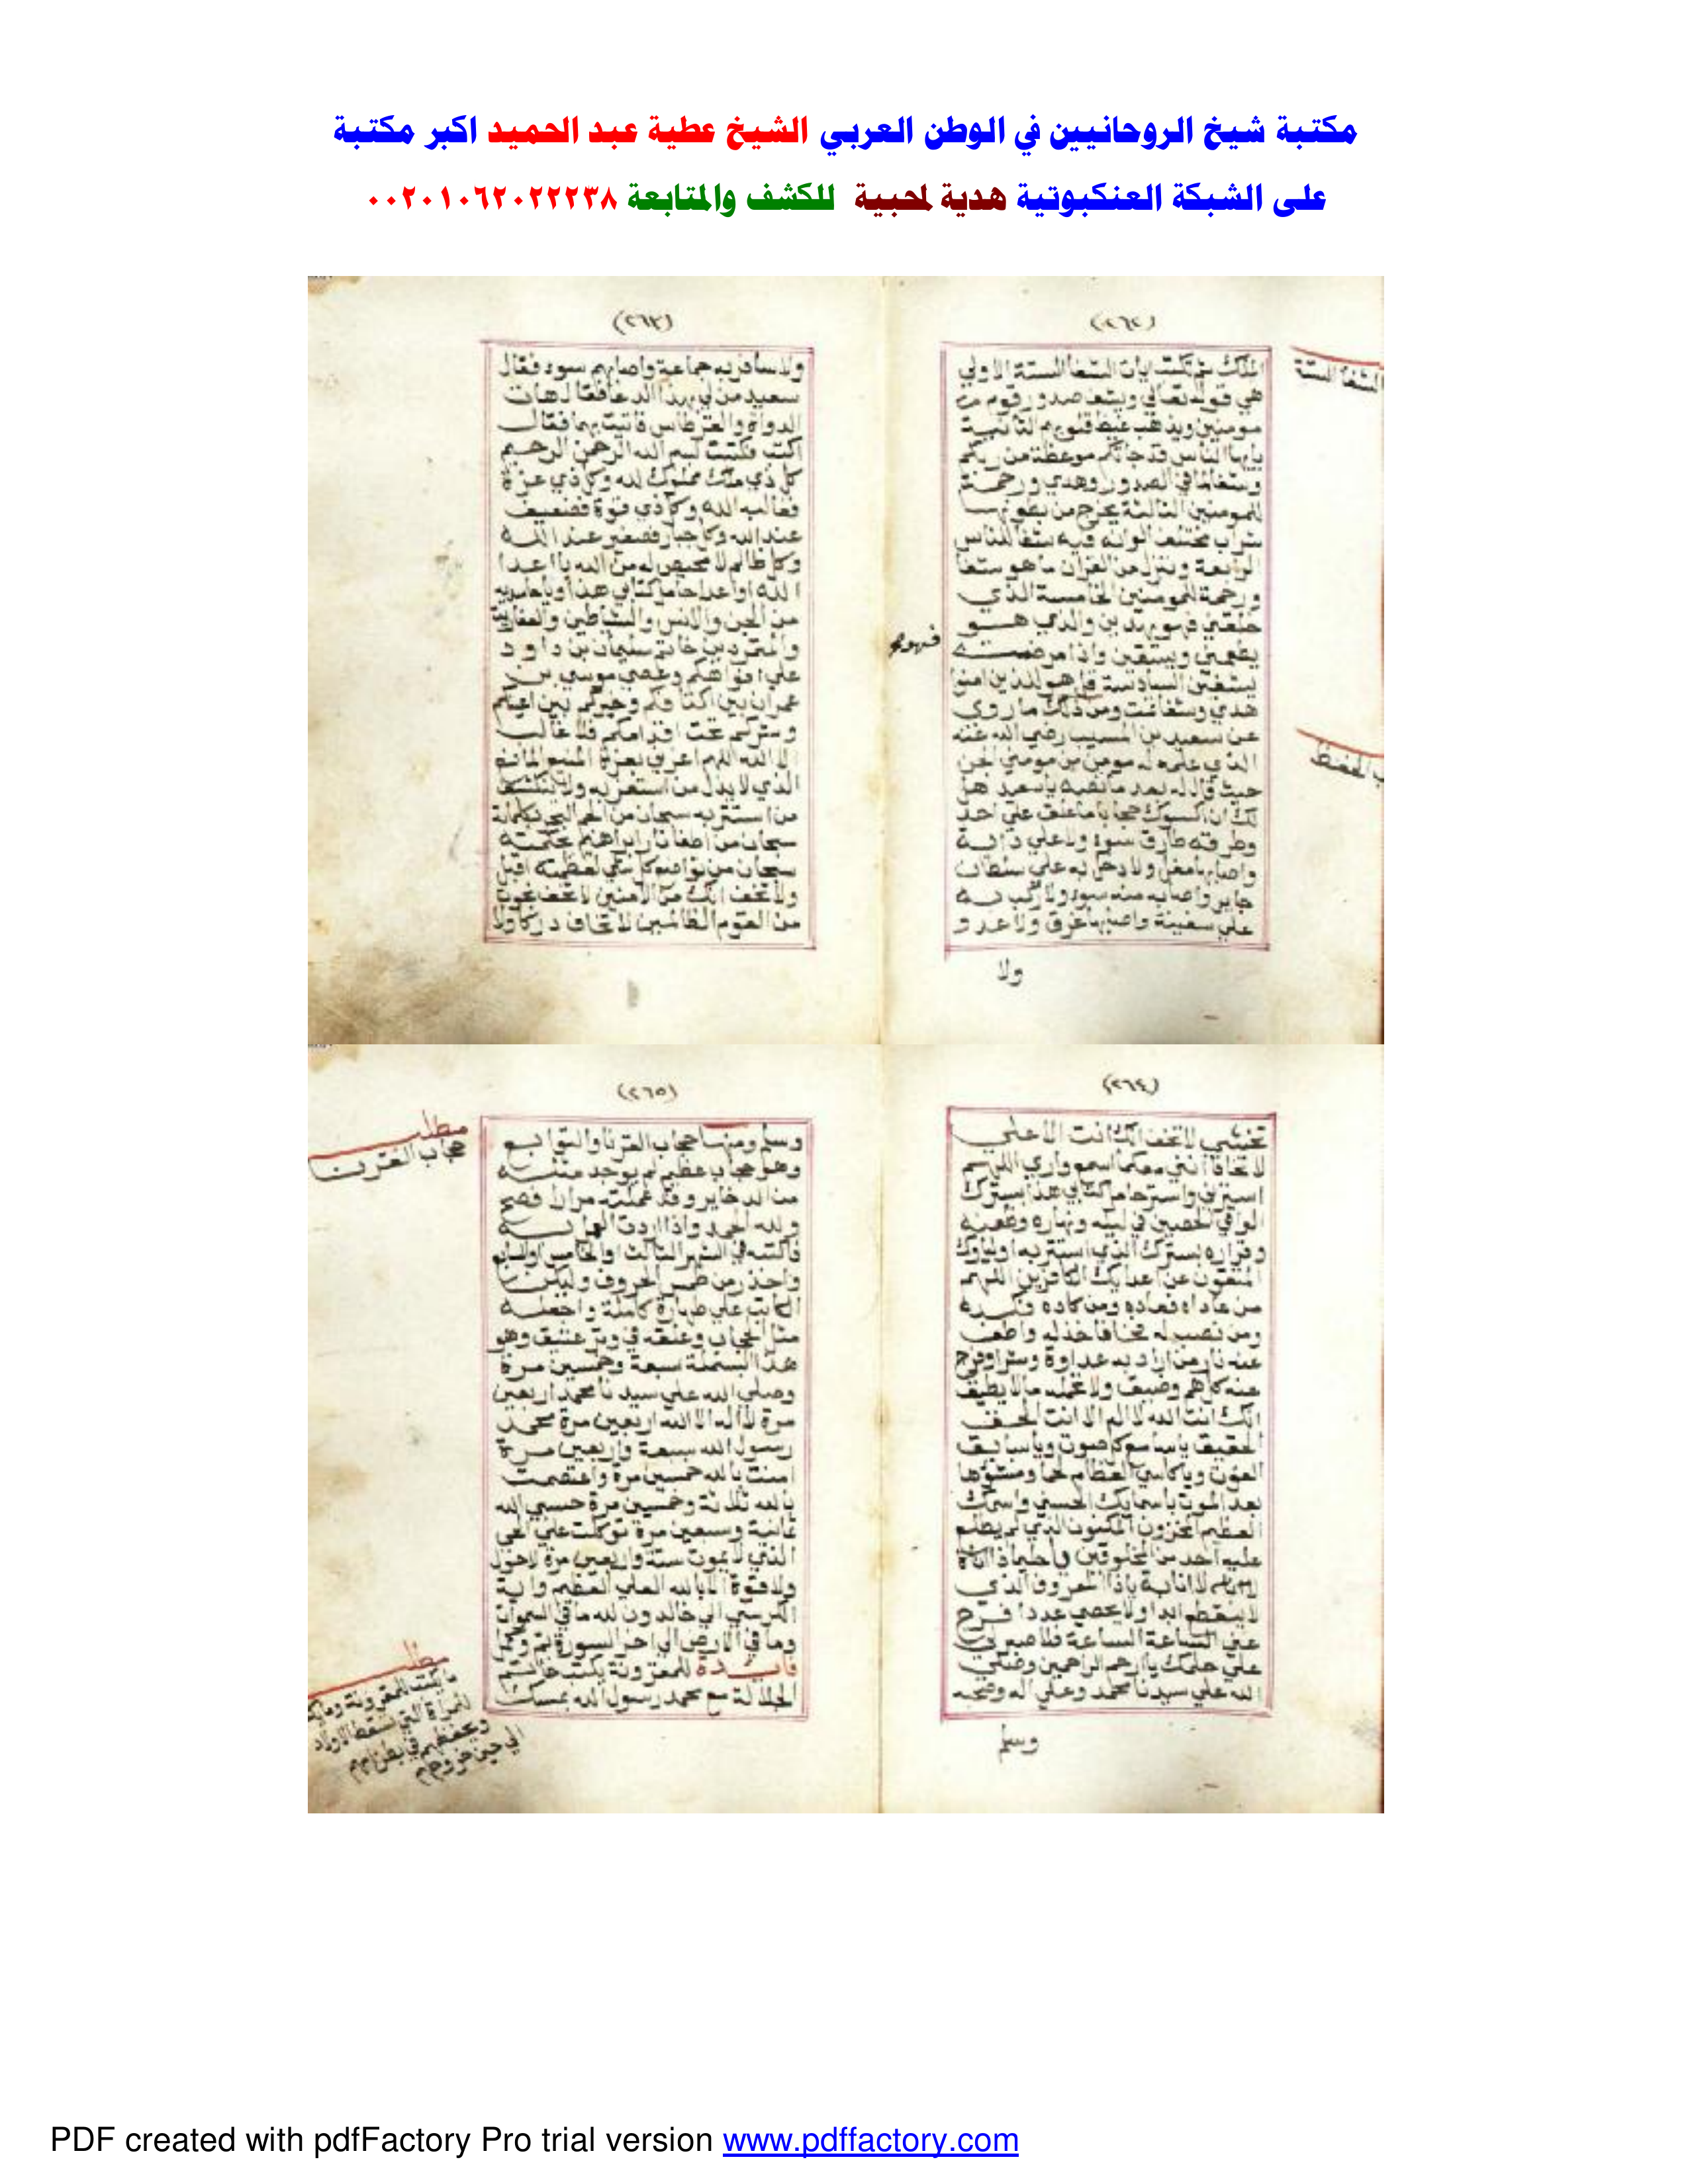 مكتبة شيخ الروحانيين في الوطن العربي الشيخ عطية عبد الحميد اكبر مكتبة
على الشبكة العنكبوتية هدية لمحبية للكشف والمتابعة ٠٠٢٠١٠٦٢٠٢٢٢٣٨
(٢٦٢)
الشفا الستة
الملك ثم تكتب ايات الشفا الستة الاولي
هي قوله تعالي ويشف صدور قوم
مومنين ويذهب غيظ قلوبهم الثانية
يايها الناس قد جاتكم موعظة من ربكم
وشفا لما في الصدور وهدي ورحمة
للمومنين الثالثة يخرج من بطونها
شراب مختلف الوانه فيه شفا للناس
الرابعة وننزل من القران ما هو شفا
ورحمة للمومنين الخامسة الذي
خلقني فهو يهدين والذي هو
يطعمني ويسقين واذا مرضت
فهو
يشفين السادسة قل هو للذين امنوا
هدي وشفا ومن ذلك ما روي
عن سعيد بن المسيب رضي الله عنه
الذي علمه له مومن من مومني الجن
حيث قال له بعد ما لقيه ياسعيد هل
لك ان اكسوك حجابا ما علق علي احد
وطرقه طارق سوء ولا علي دابة
واصابها مغل ولا دخل به علي سلطان
جاير واصابه منه سوء ولا ركب به
علي سفينة واصابها غرق ولا عدو
ولا
(٢٦٣)
ولا سافر به جماعة واصابهم سوء فقال
سعيد من لي بهذا الدعا فقال هات
الدواة والقرطاس فاتيت بهما فقال
اكتب فكتبت بسم الله الرحمن الرحيم
كل ذي ملك مملوك لله وكل ذي عزة
فغالبه الله وكل ذي قوة فضعيف
عند الله وكل جبار فصغير عند الله
وكل ظالم لا محيص له من الله يا اعدا
الله او اعدا حامل كتابي هذا
من الجن والانس والشياطين والعفاريت
والمتمردين خاتم سليمان بن داود
علي افواهكم وعصي موسي بن
عمران بين اكتافكم وخيركم بين اعينكم
وشركم تحت اقدامكم فلا غالب
الا الله اللهم بعزة المنيع
الذي لا يذل من استعز به ولا ينكشف
من استتر به سبحان من الجم البحر بكلماته
سبحان من اطفا نار ابراهيم بحكمته
سبحان من تواضع كل شي لعظمته اقبل
ولا تخف انك من الامنين لا تخف نجوت
من القوم الظالمين لا تخاف دركا ولا
(٢٦٤)
تخشي لا تخف انك انت الاعلي
لا تخافا انني معكما اسمع واري اللهم
استرني واستر حامل كتابي هذا بسترك
الواقي الحصين في ليله ونهاره وظعنه
وقراره بسترك الذي استتر به اولياوك
المتقون عن اعدايك الكافرين اللهم
من عاداه فعاده ومن كاده فكده
ومن نصب له فخا فخذله واطف
عنه نار من اراد به عداوة وشرا وفرج
عنه كل هم وضيق ولا تحمله ما لا يطيق
انك انت الله لا اله الا انت الحق
الحقيق يا سامع كل صوت ويا سابق
الفوت ويا كاسي العظام لحما ومنشزها
بعد الموت باسمايك الحسني واسمك
العظيم المخزون المكنون الذي لم يطلع
عليه احد من المخلوقين
ياذا المعروف الذي
لا ينقطع ابدا ولا يحصي عددا فرج
عني الساعة الساعة فلا صبر لي
علي حلمك يا ارحم الراحمين وصلي
الله علي سيدنا محمد وعلي اله وصحبه
وسلم
(٢٦٥)
مطلب
حجاب القرنا
وسلم ومنها حجاب القرنا والتوابع
وهو حجاب عظيم لم يوجد مثله
من الدخاير وقد عملته مرارا فصح
ولله الحمد واذا اردت العمل به
فاكتبه في الشهر الثالث او الخامس او السابع
واحذر من طمس الحروف وليكن
الكاتب علي طهارة كاملة واجعله
مثل الحجاب وعلقه في وتر عتيق وهو
هذا البسملة سبعة وخمسين مرة
وصلي الله علي سيدنا محمد اربعين
مرة لا اله الا الله اربعين مرة محمد
رسول الله سبعة واربعين مرة
امنت بالله خمسين مرة واعتصمت
بالله ثلاثة وخمسين مرة حسبي الله
ثمانية وسبعين مرة توكلت علي الحي
الذي لا يموت ستة واربعين مرة لا حول
ولا قوة الا بالله العلي العظيم واية
الكرسي الي خالدون لله ما في السموات
وما في الارض الي اخر السورة
فايدة للمقرونة يكتب خاتم
الجلالة مع محمد رسول الله بمسك
مطلب
ما يكتب للمقرونة وما يكتب
للمراة التي تسقط الاولاد
ويحفظهم في بطن امهم
الي حين خروجهم
PDF created with pdfFactory Pro trial version www.pdffactory.com